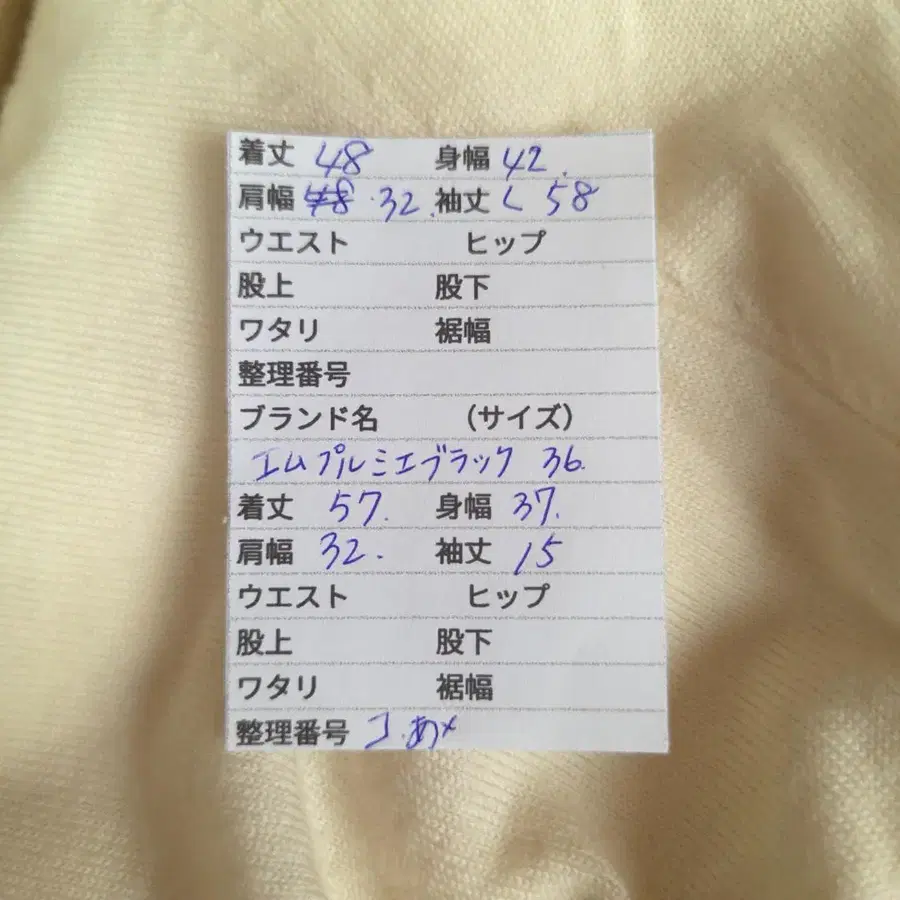 着丈 48 身幅 42.
肩幅 32. 袖丈 く 58
ウエスト ヒップ
股上 股下
ワタリ 裾幅
整理番号
ブランド名 (サイズ)
エムプルミエブラック 36.
着丈 57. 身幅 37.
肩幅 32. 袖丈 15
ウエスト ヒップ
股上 股下
ワタリ 裾幅
整理番号